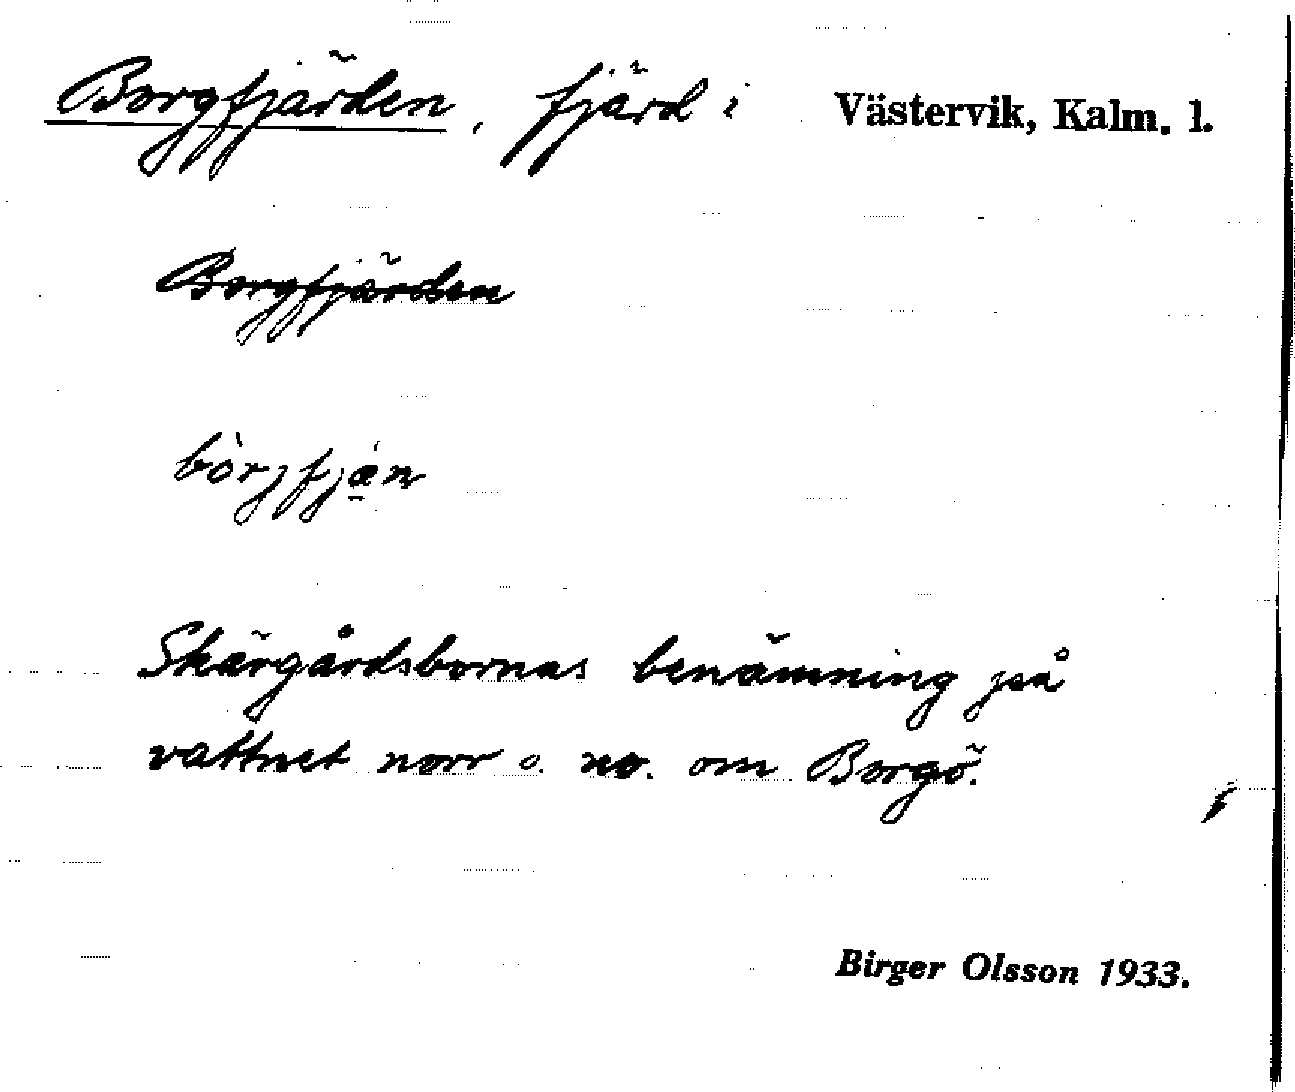 Borgfjärden, fjärd i Västervik, Kalm. l.
Borgfjärden
bòrjfjǽ̠n
Skärgårdsbornas benämning på
vattnet norr o. no. om Borgö.
Birger Olsson 1933.